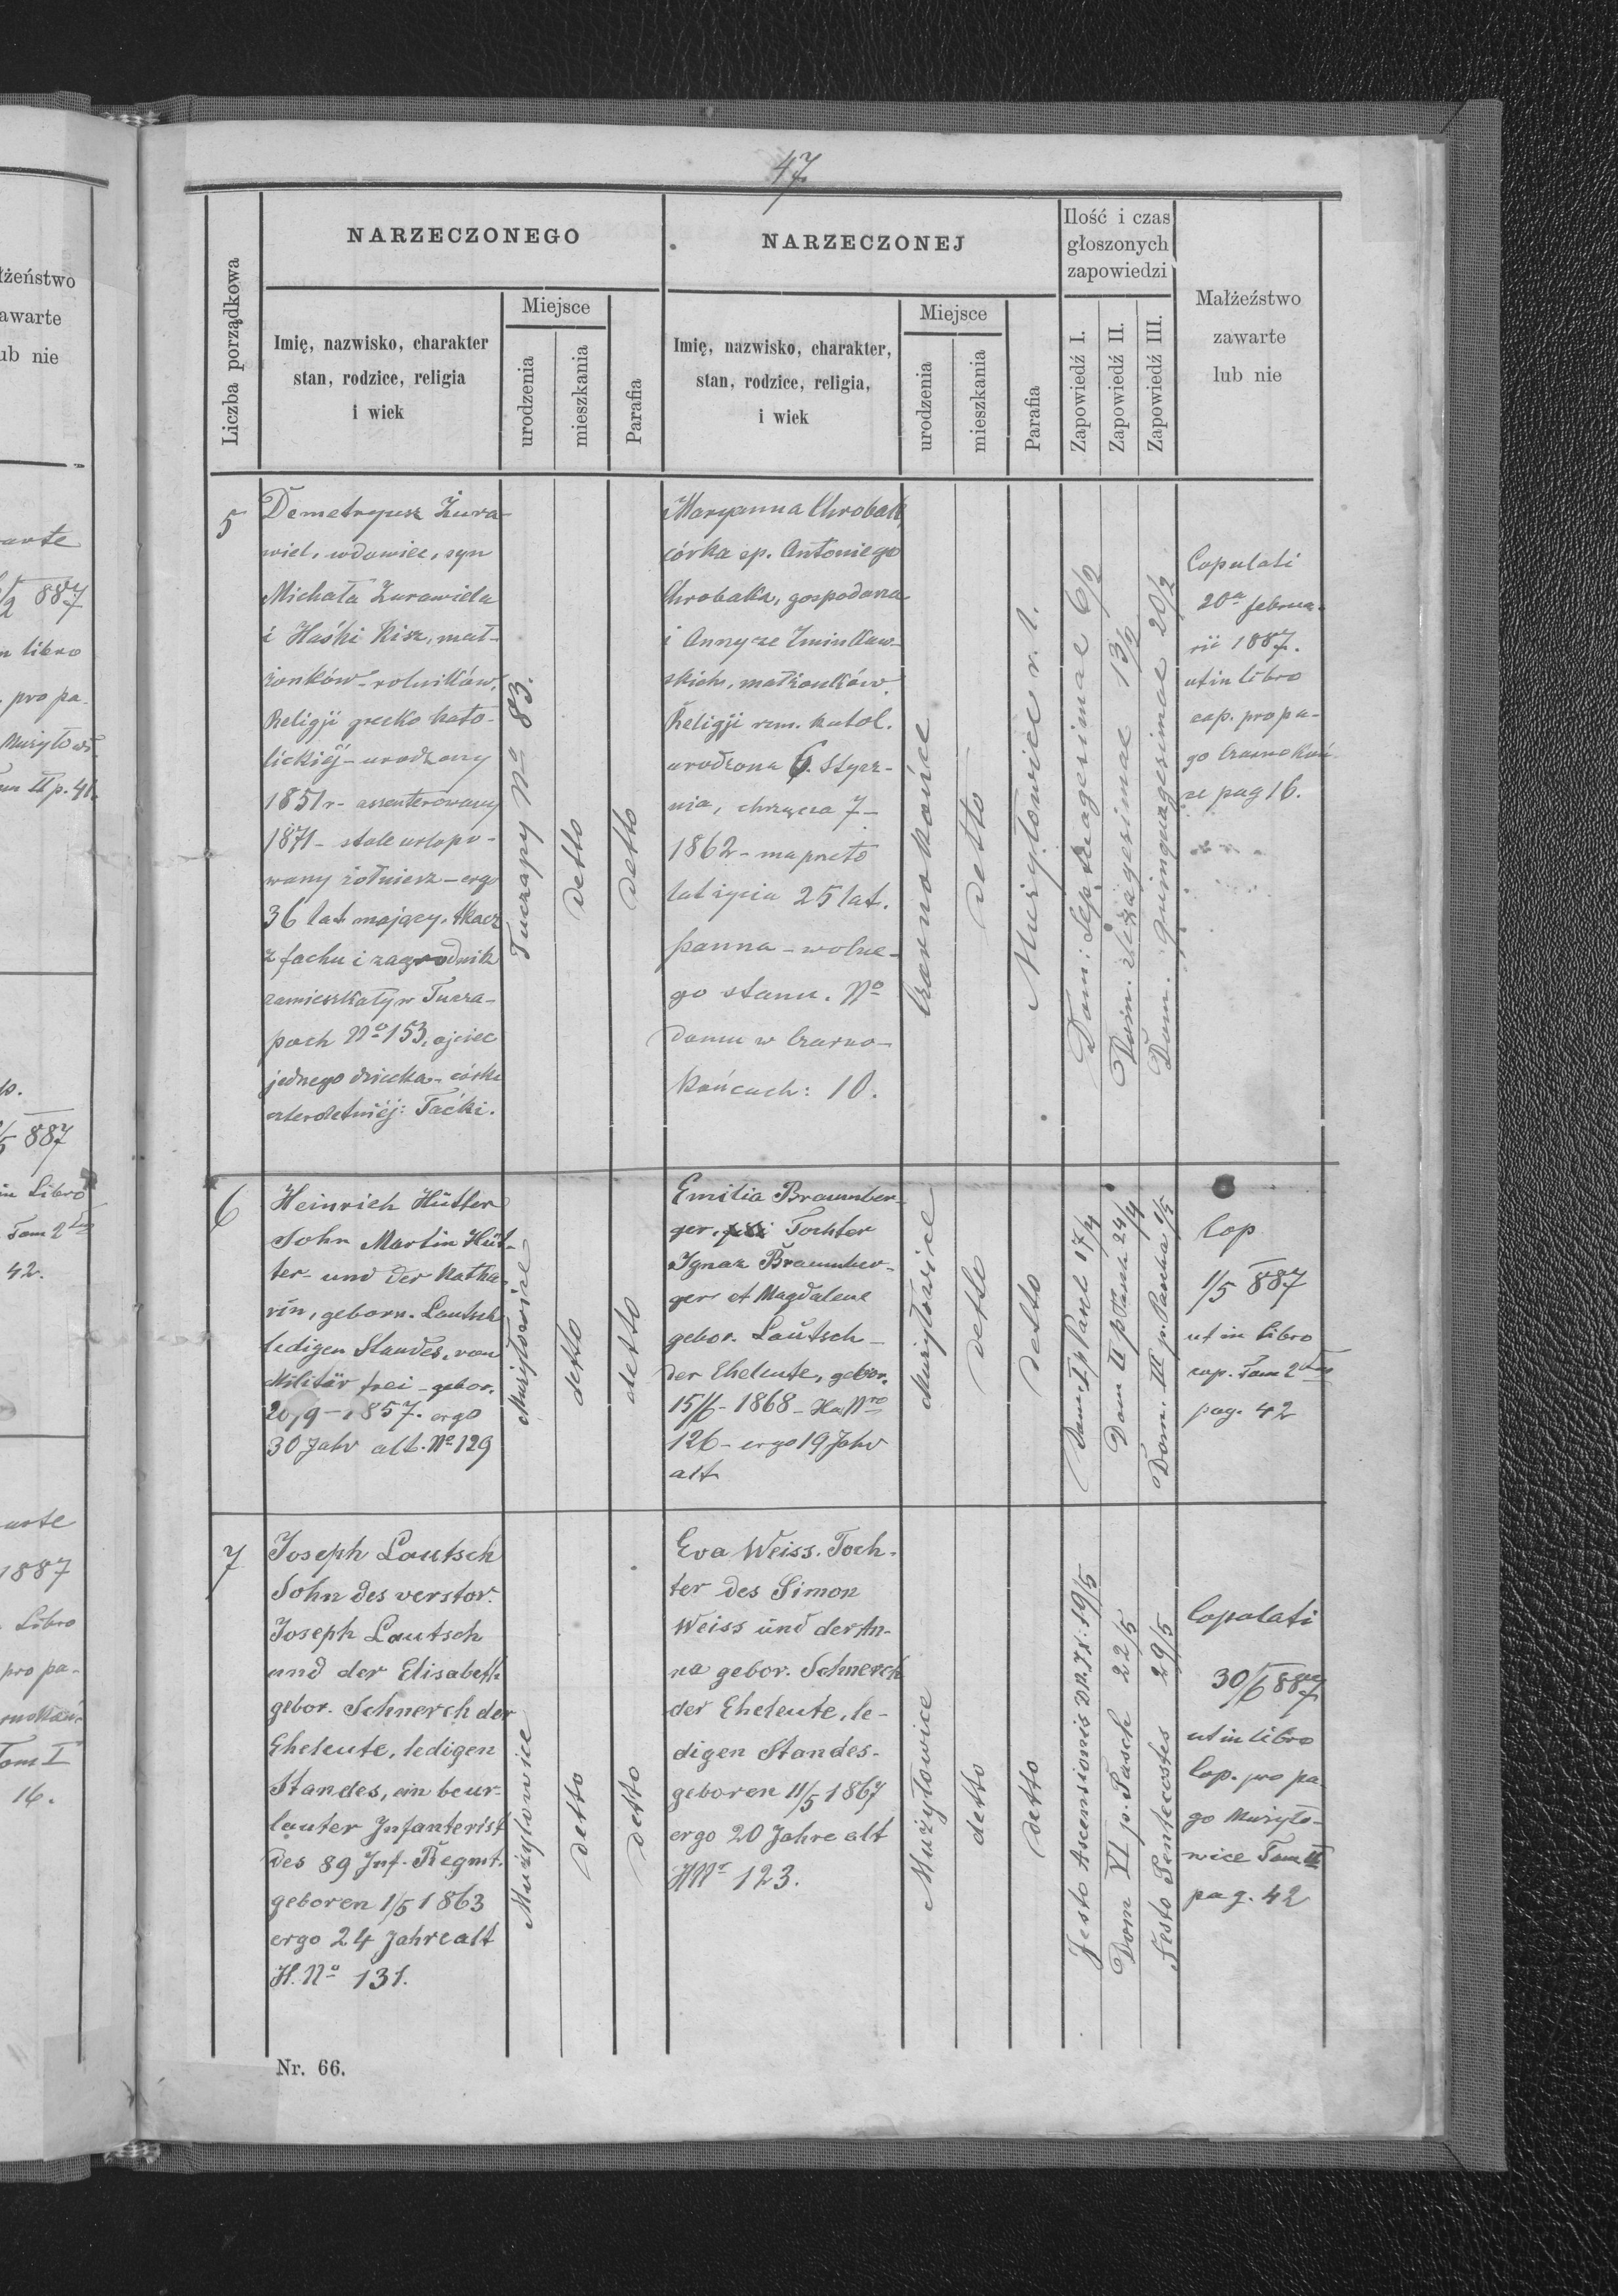 47
NARZECZONEGO
NARZECZONEJ
Ilość i czas
głoszonych
zapowiedzi
Małżeństwo
zawarte
lub nie
Liczba porządkowa
Imię, nazwisko, charakter
stan, rodzice, religia
i wiek
Miejsce
urodzenia
mieszkania
Parafia
Imię, nazwisko, charakter,
stan, rodzice, religia,
i wiek
Miejsce
urodzenia
mieszkania
Parafia
Zapowiedź I.
Zapowiedź II.
Zapowiedź III.
5
Demetryusz Żura-
wiel, wdowiec, syn
Michała Żurawiela
i Haśki Kisz, mał-
żonków - rolników,
Religji grecko kato-
lickiéj - urodzony
1851 r - assenterowany
1871 - stale urlopo-
wany żołnierz - ergo
36 lat mający, tkacz
z fachu i zagrodnik
zamieszkały w Tucza-
pach No 153, ojciec
jednego dziecka - córki
czteroletniéj: Taćki.
Tuczapy No 83.
detto
detto
Maryanna Chrobak,
córka śp. Antoniego
Chrobaka, gospodarza
i Anny ze Zminkow-
skich, małżonków.
Religji rzm. katol.
urodzona 6. Stycz-
nia, chrzczona 7 -
1862 - ma przeto
lat życia 25 lat.
panna - wolne-
go stanu. No
domu w Czarno-
końcach: 10.
Czarnokońce
detto
Mużyłowice r. l.
Dom: Septuagesimae 6/2
Dom. Sexagesimae 13/2
Dom. Quinquagesimae 20/2
Copulati
20a februa-
rii 1887.
ut in libro
cop. pro pa-
go Czarnokoń-
ce pag 16.
6
Heinrich Hütter
Sohn Martin Hüt-
ter und der Katha-
rin, geborn. Lautsch
ledigen Standes, vom
Militär frei - gebor.
20/9 - 1857. ergo
30 Jahr alt. No 129
Mużyłowice
detto
detto
Emilia Braumber-
ger, Tochter
Ignaz Braumber-
ger et Magdalene
gebor. Lautsch -
der Eheleute, gebor.
15/6 - 1868 - Hs Nro
126 - ergo 19 Jahr
alt
Mużyłowice
detto
detto
Dom. I p Pasch 17/4
Dom II p Pasch 24/4
Dom. III p. Pascha 1/5
Cop
1/5 887
ut in libro
cop. Tom 2do
pag. 42
7
Joseph Lautsch
Sohn des verstor.
Joseph Lautsch
und der Elisabeth
gebor. Schnerch der
Eheleute, ledigen
Standes, ein beur-
lauter Infanterist
des 89 Inf. Regmt.
geboren 1/5 1863
ergo 24 Jahre alt
H. No 131.
Mużyłowice
detto
detto
Eva Weiss. Toch-
ter des Simon
Weiss und der An-
na gebor. Schnerch
der Eheleute, le-
digen Standes -
geboren 11/5 1867
ergo 20 Jahre alt
HNr 123.
Mużyłowice
detto
detto
Festo Ascensionis 19/5
Dom VI p. Pasch 22/5
Festo Pentecostes 29/5
Copulati
30/5 887
ut in libro
Cop. pro pa-
go Mużyło-
wice Tom II
pag. 42
Nr. 66.